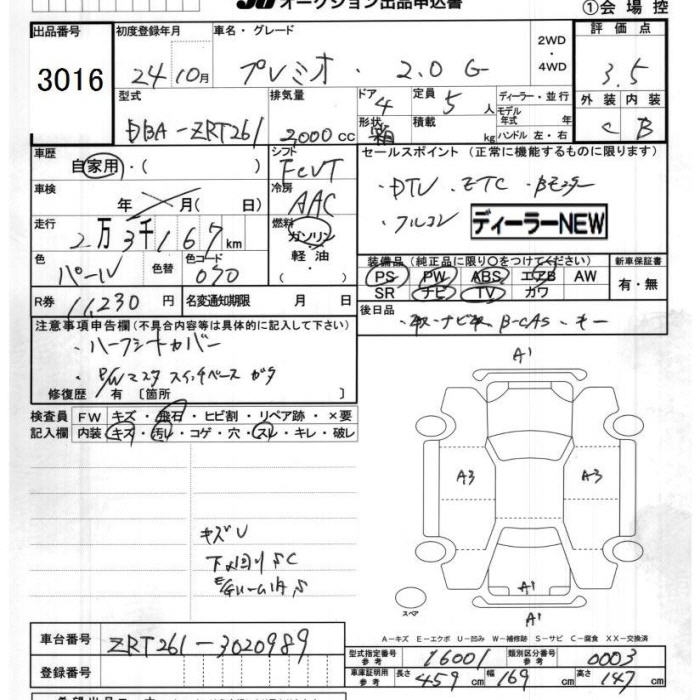 オークション出品申込書
①会場控
出品番号
3016
初度登録年月
24年10月
車名・グレード
プレミオ・2.0 G
2WD・4WD
評価点
3.5
型式
DBA-ZRT261
排気量
2,000cc
ドア
4
形状
箱
定員
5人
積載
kg
ディーラー・並行
モデル年式
年
ハンドル 左・右
外装
C
内装
B
車歴
自家用・( )
シフト
FCVT
セールスポイント (正常に機能するものに限ります)
・DTV ・ETC ・Bモニター
・フルコン ディーラーNEW
車検
年 月( 日)
冷房
AAC
走行
2万3千167km
燃料
ガソリン・軽油・
色
パール
色替
色コード
070
装備品 (純正品に限り○をつけてください)
PS PW ABS エアB AW
SR ナビ TV カワ
新車保証書
有・無
R券
11,230円
名変通知期限 月 日
後日品
・取・ナビ取 B-CAS ・キー
注意事項申告欄 (不具合内容等は具体的に記入して下さい)
・ハーフシートカバー
・P/Wマスタ スイッチベース ガタ
修復歴 有 [箇所 ]
検査員記入欄
FW キズ・飛石・ヒビ割・リペア跡・×要
内装 キズ・汚れ・コゲ・穴・スレ・キレ・破レ
A1
A3
A3
A1
A1
スペア
キズU
下廻りSC
A-キズ E-エクボ U-凹み W-補修跡 S-サビ C-腐食 XX-交換済
車台番号
ZRT261-3020989
登録番号
型式指定番号 参考
16001
類別区分番号 参考
0003
車庫証明用 参考
長さ 459cm 幅 169cm 高さ 147cm